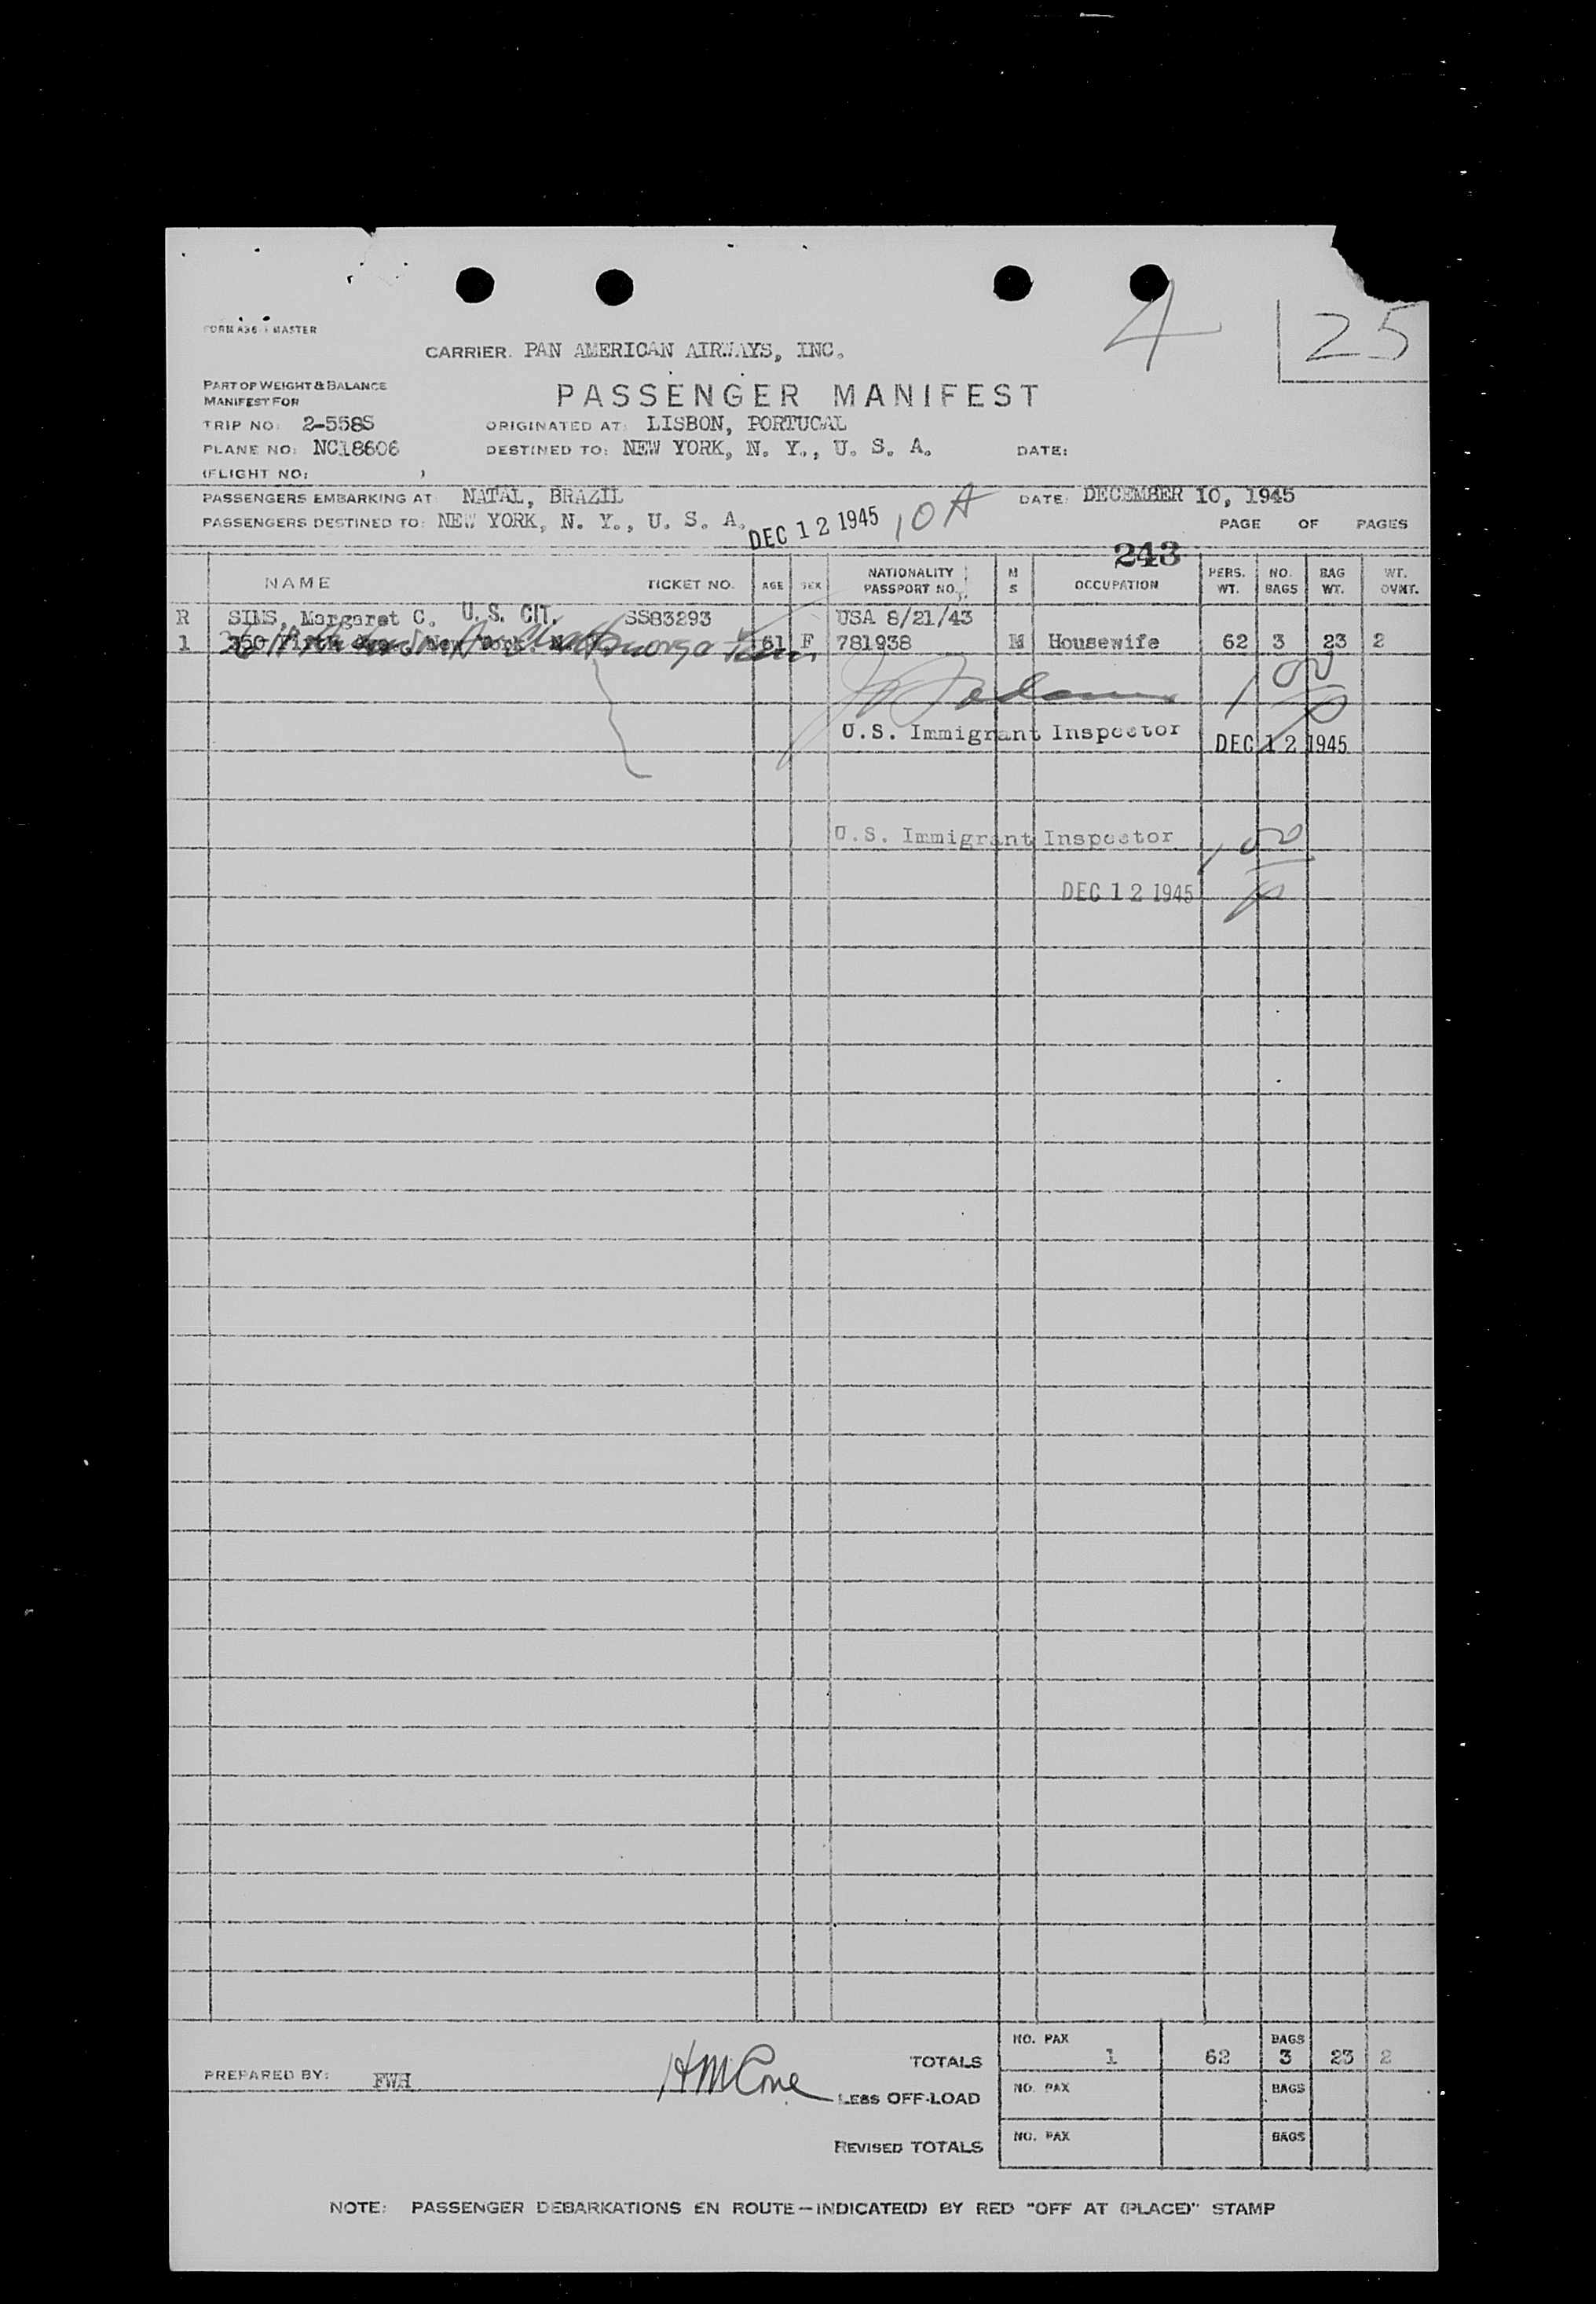 4
25
FORM A36-1 MASTER
CARRIER. PAN AMERICAN AIRWAYS, INC.
PART OF WEIGHT & BALANCE
MANIFEST FOR
PASSENGER MANIFEST
TRIP NO: 2-558S ORIGINATED AT: LISBON, PORTUGAL
PLANE NO: NC18606 DESTINED TO: NEW YORK, N. Y., U. S. A. DATE:
(FLIGHT NO: )
PASSENGERS EMBARKING AT: NATAL, BRAZIL DATE: DECEMBER 10, 1945
PASSENGERS DESTINED TO: NEW YORK, N. Y., U. S. A. DEC 12 1945 10 A PAGE OF PAGES
243
NAME TICKET NO. AGE SEX NATIONALITY PASSPORT NO. M S OCCUPATION PERS. WT. NO. BAGS BAG WT. WT. OVNT.
R SIMS, Margaret C. U.S. CIT. SS83293 USA 8/21/43
1 350 Fifth Ave. New York, N. Y. 61 F 781938 M Housewife 62 3 23 2
U.S. Immigrant Inspector DEC 12 1945
U.S. Immigrant Inspector
DEC 12 1945
PREPARED BY: FWH
TOTALS NO. PAX 1 62 BAGS 3 23 2
LESS OFF-LOAD NO. PAX BAGS
REVISED TOTALS NO. PAX BAGS
NOTE: PASSENGER DEBARKATIONS EN ROUTE—INDICATE(D) BY RED "OFF AT (PLACE)" STAMP